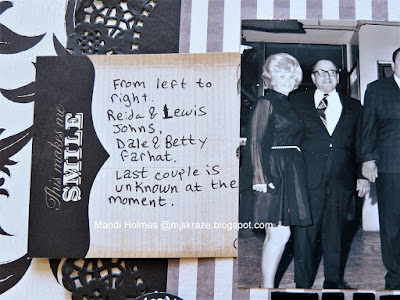 From left to
right.
Reida & Lewis
Johns.
Dale & Betty
Farhat.
Last couple is
unknown at the
moment.
This makes me
SMILE
Mandi Holmes @mjskraze.blogspot.com